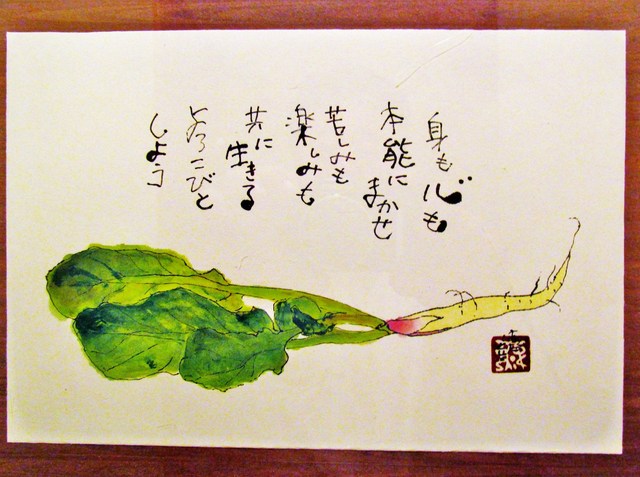 身も心も
本能にまかせ
苦しみも
楽しみも
共に生きる
よろこびと
しよう